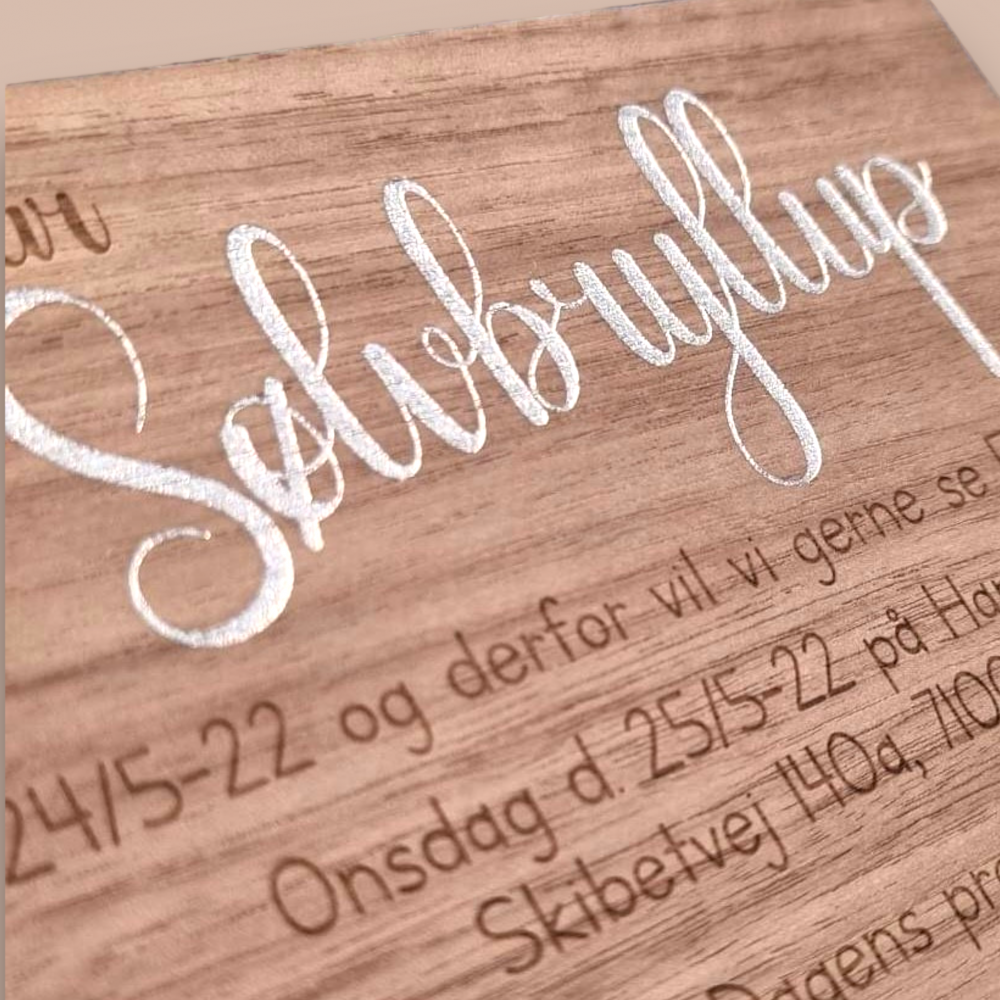 Sølvbryllup
24/5-22 og derfor vil vi gerne se
Onsdag d. 25/5-22 på
Skibetvej 140a, 7100
Dagens